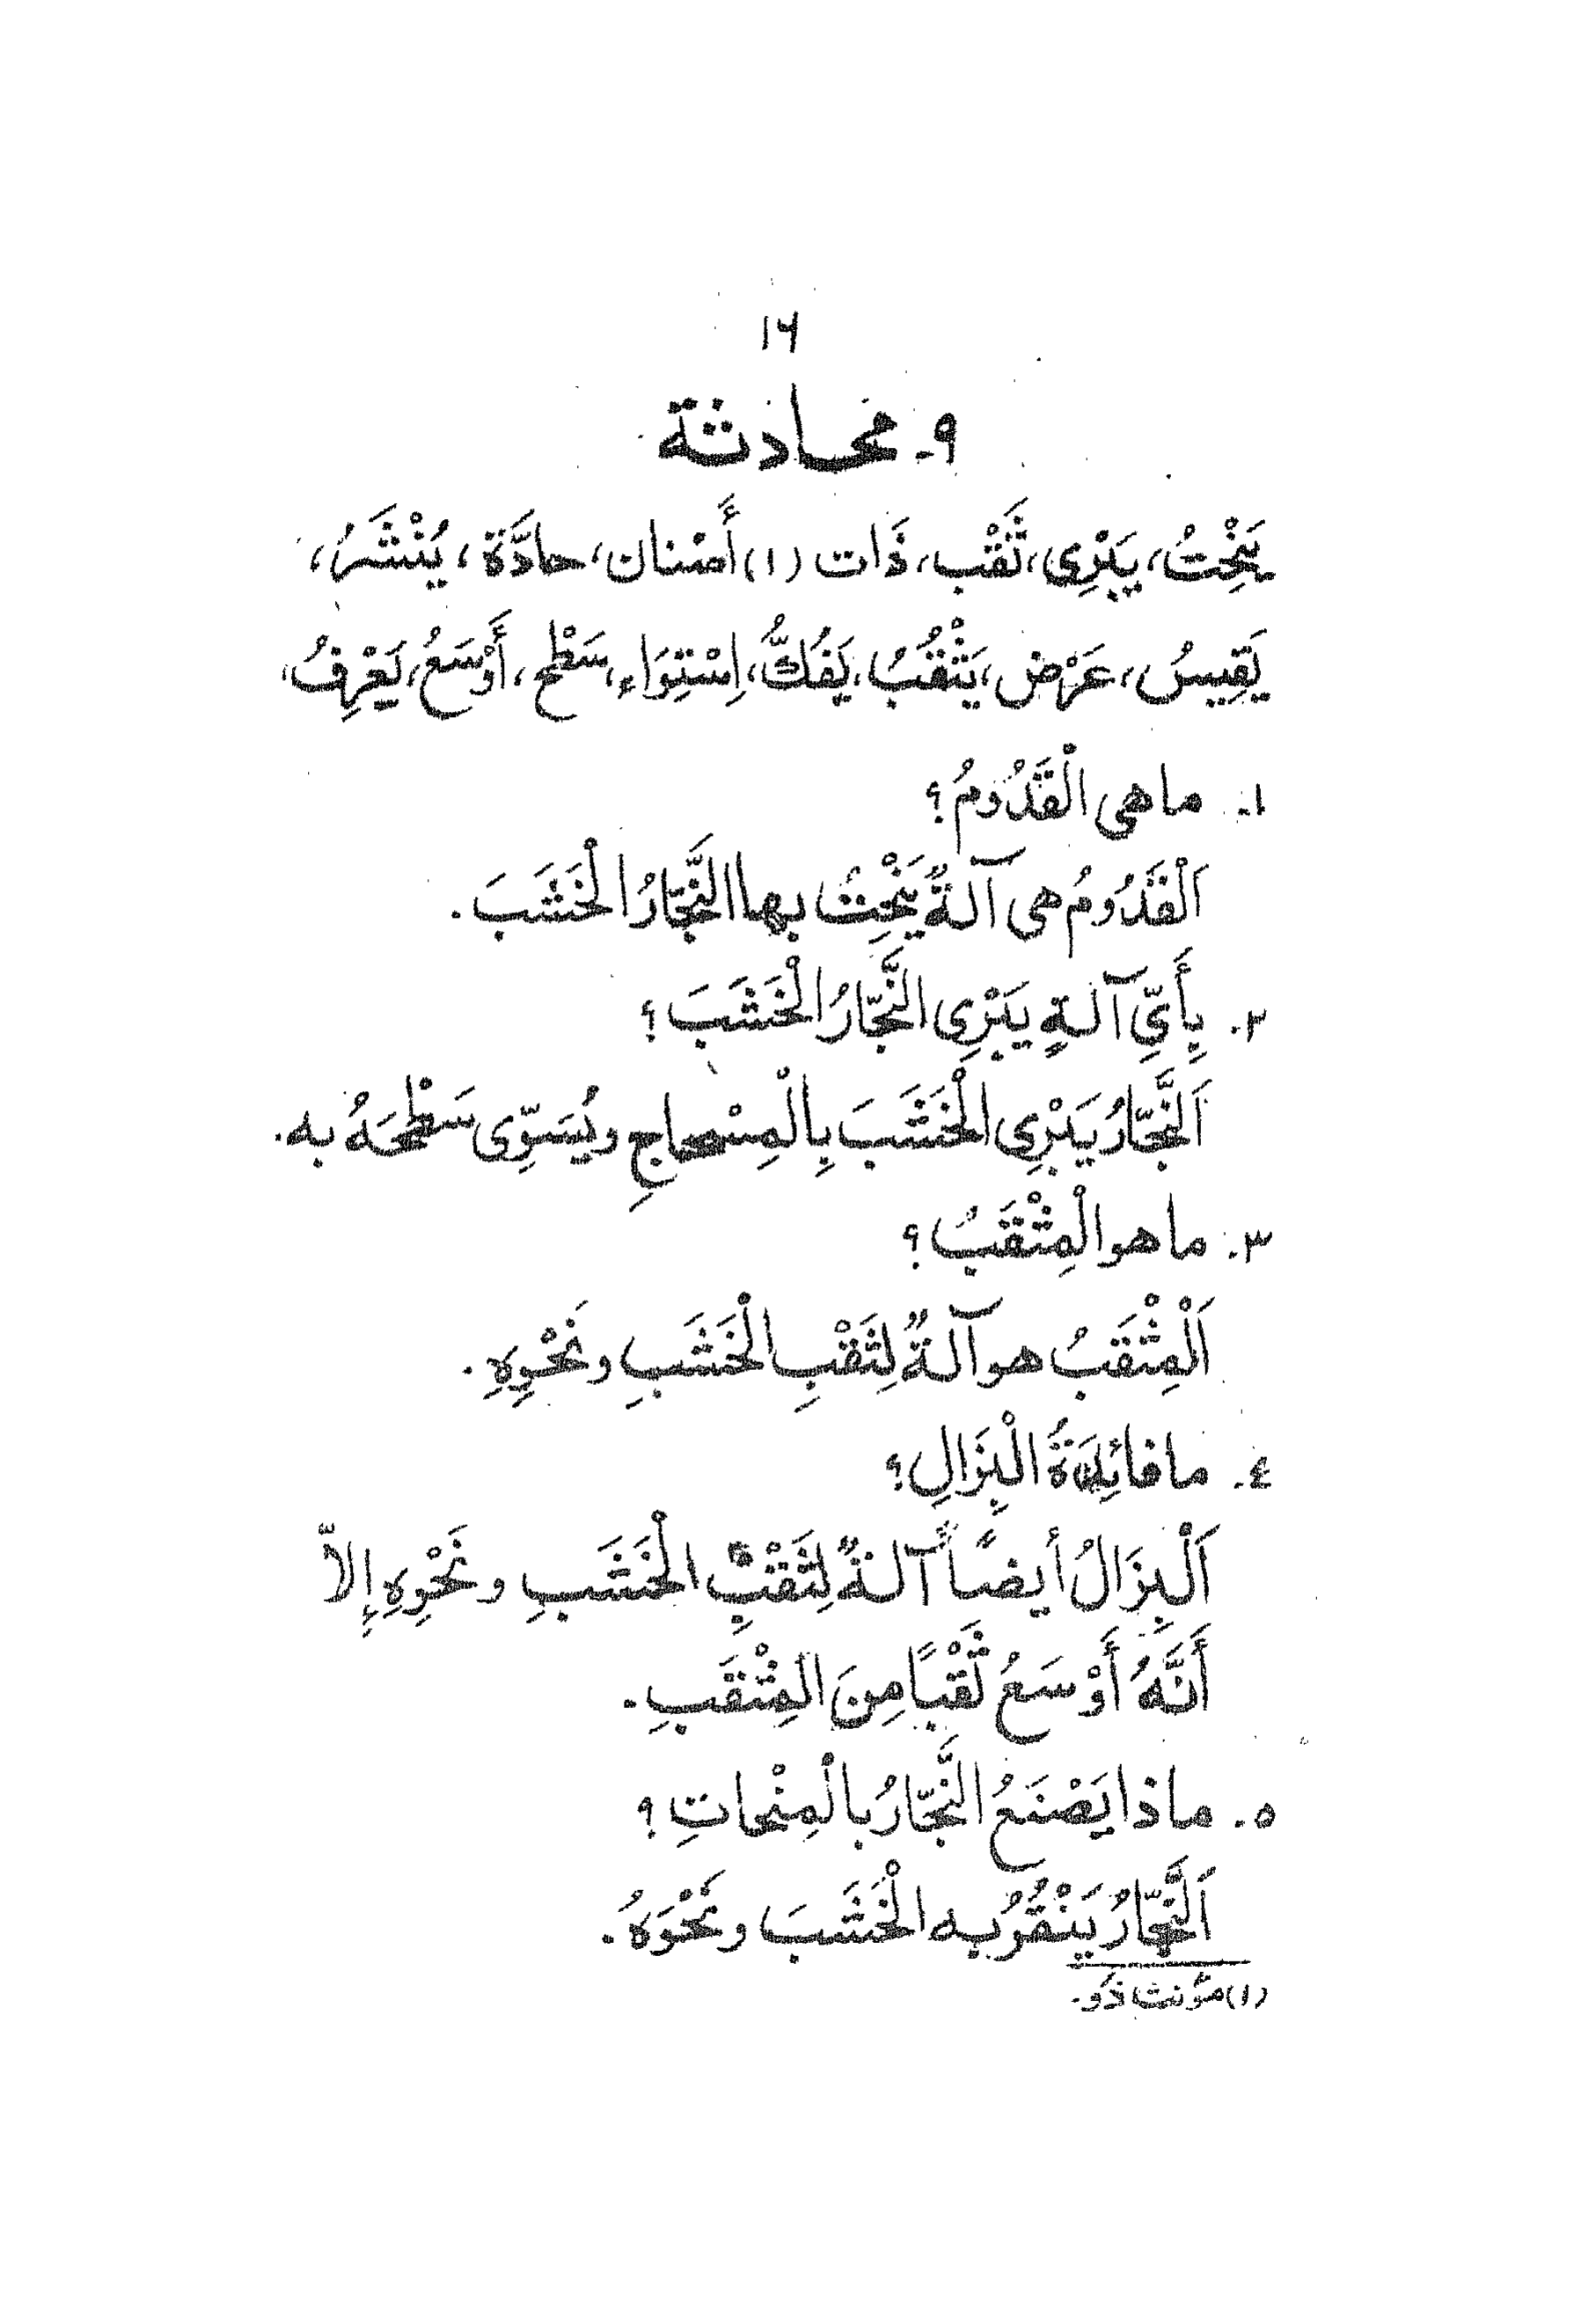 ١٦
٩- محادثة
يَنْحِتُ، يَبْرِى، ثَقْب، ذَات (١) أَسْنان، حادَّة، يُنْشَرُ،
يَقِيسُ، عَرْض، يَثْقُبُ، يَفُكُّ، اِسْتِوَاء، سَطْح، أَوْسَعُ، يَعْرِفُ،
١- ماهى الْقَدُومُ؟
اَلْقَدُومُ هى آلةٌ يَنْحِتُ بها النَّجَّارُ الْخَشَبَ.
٢- بِأَيِّ آلةٍ يَبْرِى النَّجَّارُ الْخَشَبَ؟
اَلنَّجَّارُ يَبْرِى الْخَشَبَ بِالْمِسْحاجِ ويُسَوِّى سَطْحَهُ به.
٣- ما هو الْمِثْقَبُ؟
اَلْمِثْقَبُ هو آلةٌ لِثَقْبِ الْخَشَبِ ونَحْوِهِ.
٤- ما فائِدَةُ الْبِزَالِ؟
اَلْبِزَالُ أيضاً آلةٌ لِثَقْبِ الْخَشَبِ ونَحْوِهِ إلاّ
أَنَّهُ أَوْسَعُ ثَقْبًا مِنَ الْمِثْقَبِ.
٥- ماذا يَصْنَعُ النَّجَّارُ بالْمِنْحاتِ؟
اَلنَّجَّارُ يَنْقُرُ به الْخَشَبَ ونَحْوَهُ.
(١) مؤنث ذو.